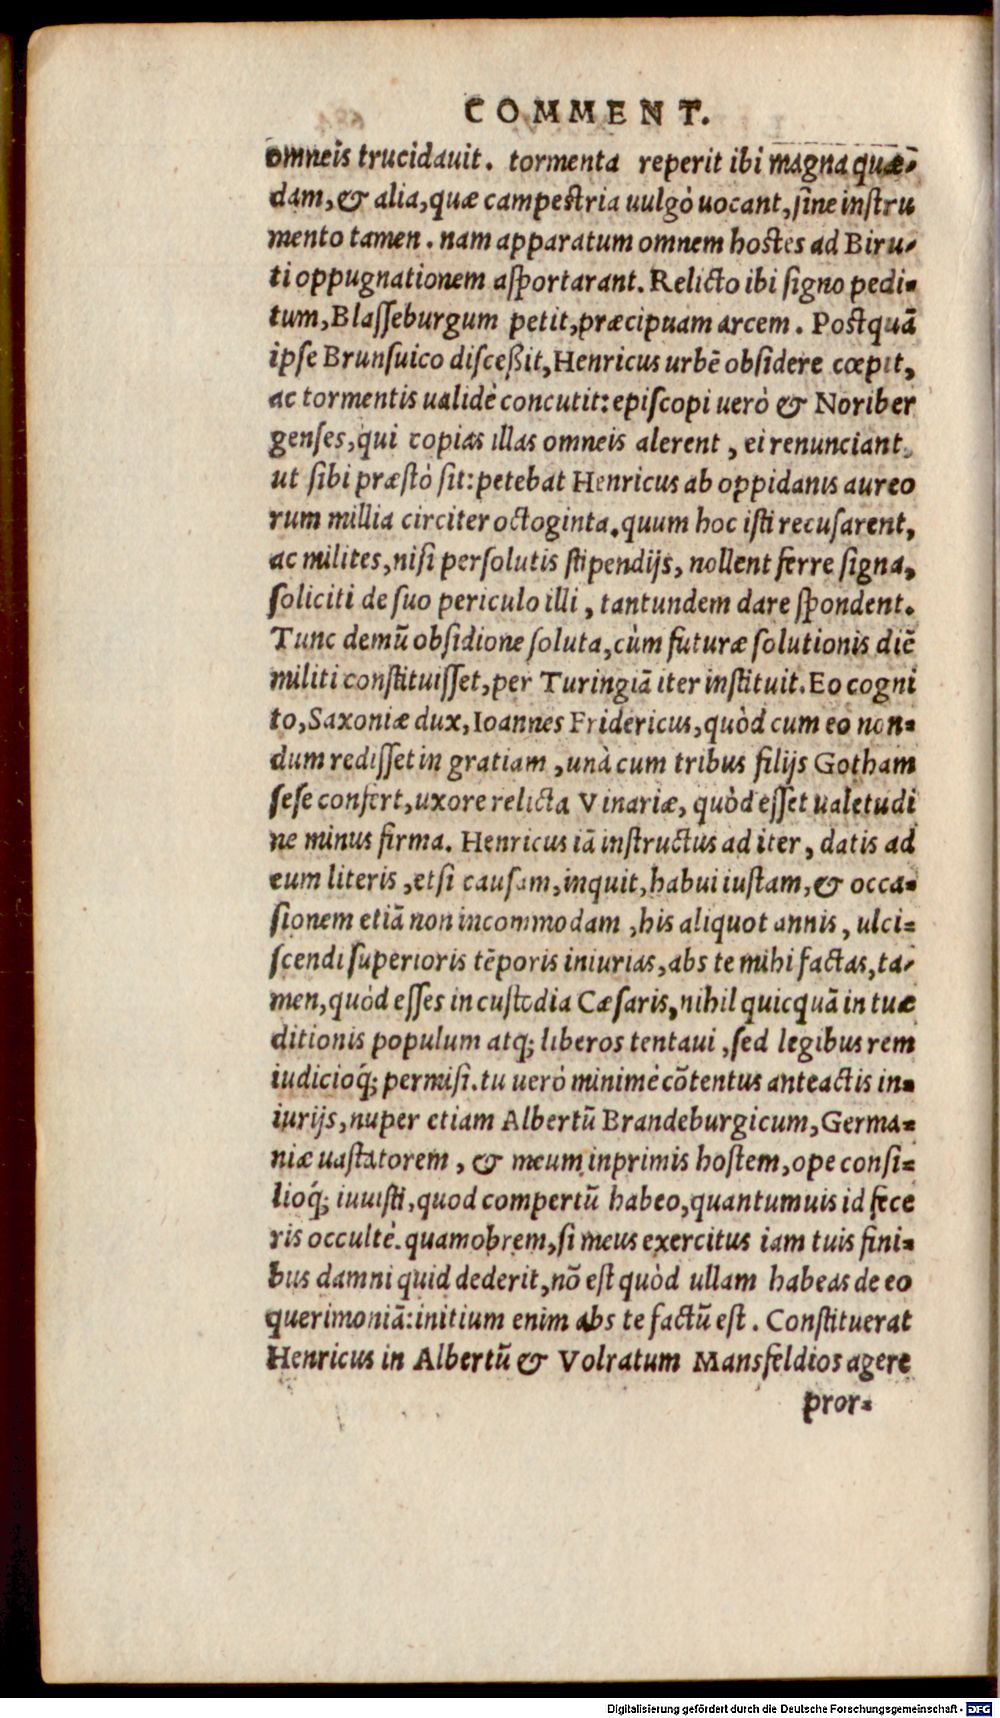 COMMENT.
omneis trucidauit. tormenta reperit ibi magna quæ-
dam, & alia, quæ campestria uulgò uocant, sine instru
mento tamen. nam apparatum omnem hostes ad Biru-
ti oppugnationem asportarant. Relicto ibi signo pedi-
tum, Blasseburgum petit, præcipuam arcem. Postquā
ipse Brunsuico disceßit, Henricus urbē obsidere cœpit,
ac tormentis ualidè concutit: episcopi uerò & Noriber
genses, qui copias illas omneis alerent, ei renunciant,
ut sibi præstò sit: petebat Henricus ab oppidanis aureo
rum millia circiter octoginta. quum hoc isti recusarent,
ac milites, nisi persolutis stipendijs, nollent ferre signa,
soliciti de suo periculo illi, tantundem dare spondent.
Tunc demū obsidione soluta, cùm futuræ solutionis diē
militi constituisset, per Turingiā iter instituit. Eo cogni
to, Saxoniæ dux, Ioannes Fridericus, quòd cum eo non-
dum redisset in gratiam, unà cum tribus filijs Gotham
sese confert, uxore relicta Vinariæ, quòd esset ualetudi
ne minus firma. Henricus iā instructus ad iter, datis ad
eum literis, etsi causam, inquit, habui iustam, & occa-
sionem etiā non incommodam, his aliquot annis, ulci-
scendi superioris tēporis iniurias, abs te mihi factas, ta-
men, quòd esses in custodia Cæsaris, nihil quicquā in tuæ
ditionis populum atq; liberos tentaui, sed legibus rem
iudicioq́; permisi. tu uerò minimè cōtentus anteactis in-
iurijs, nuper etiam Albertū Brandeburgicum, Germa-
niæ uastatorem, & meum inprimis hostem, ope consi-
lioq́; iuuisti, quod compertū habeo, quantumuis id fece
ris occultè. quamobrem, si meus exercitus iam tuis fini-
bus damni quid dederit, nō est quòd ullam habeas de eo
querimoniā: initium enim abs te factū est. Constituerat
Henricus in Albertū & Volratum Mansfeldios agere
pror-
Digitalisierung gefördert durch die Deutsche Forschungsgemeinschaft - DFG